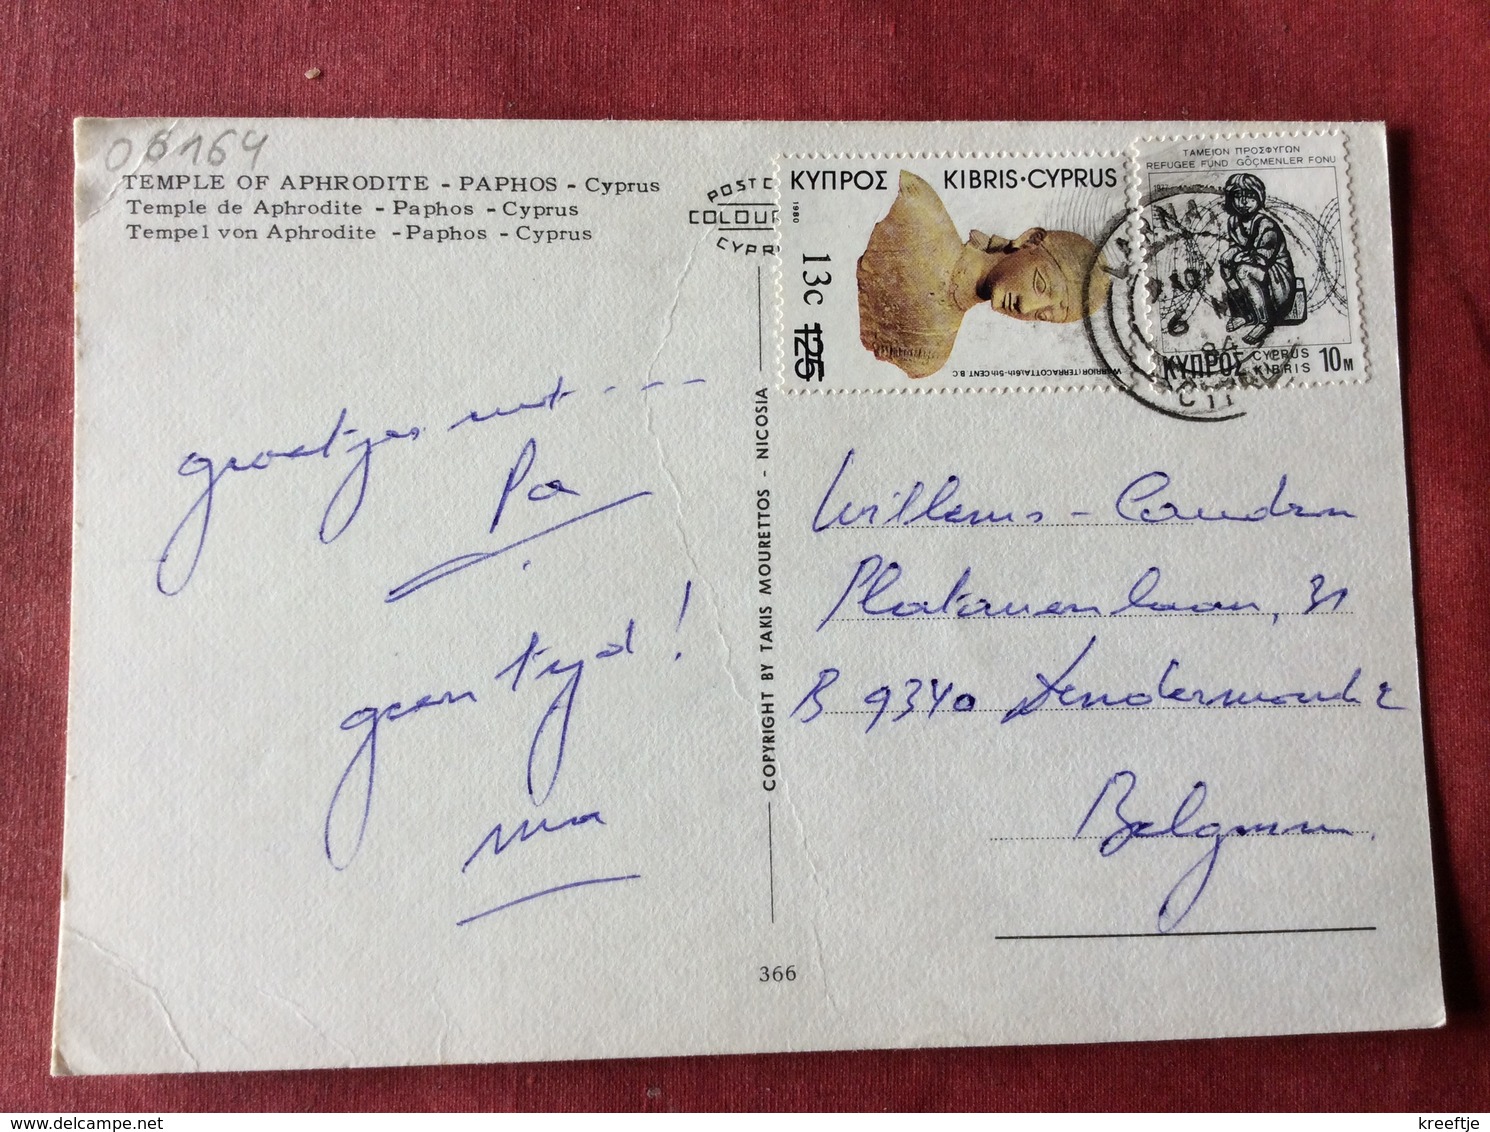 06164
TEMPLE OF APHRODITE - PAPHOS - Cyprus
Temple de Aphrodite - Paphos - Cyprus
Tempel von Aphrodite - Paphos - Cyprus
POST C
COLOUR
CYPR
ΚΥΠΡΟΣ KIBRIS·CYPRUS
1980
13c 125
WARRIOR (TERRACOTTA) 6th-5th CENT. B.C
ΤΑΜΕΙΟΝ ΠΡΟΣΦΥΓΩΝ
REFUGEE FUND GÖÇMENLER FONU
1977
ΚΥΠΡΟΣ CYPRUS KIBRIS 10M
LARNA
6 M
84
groetjes uit ---
Pa
geen tijd!
ma
COPYRIGHT BY TAKIS MOURETTOS - NICOSIA
366
Willems - Caudron
Platanenlaan, 31
B 9340 Dendermonde
Belgium.
kreeftje